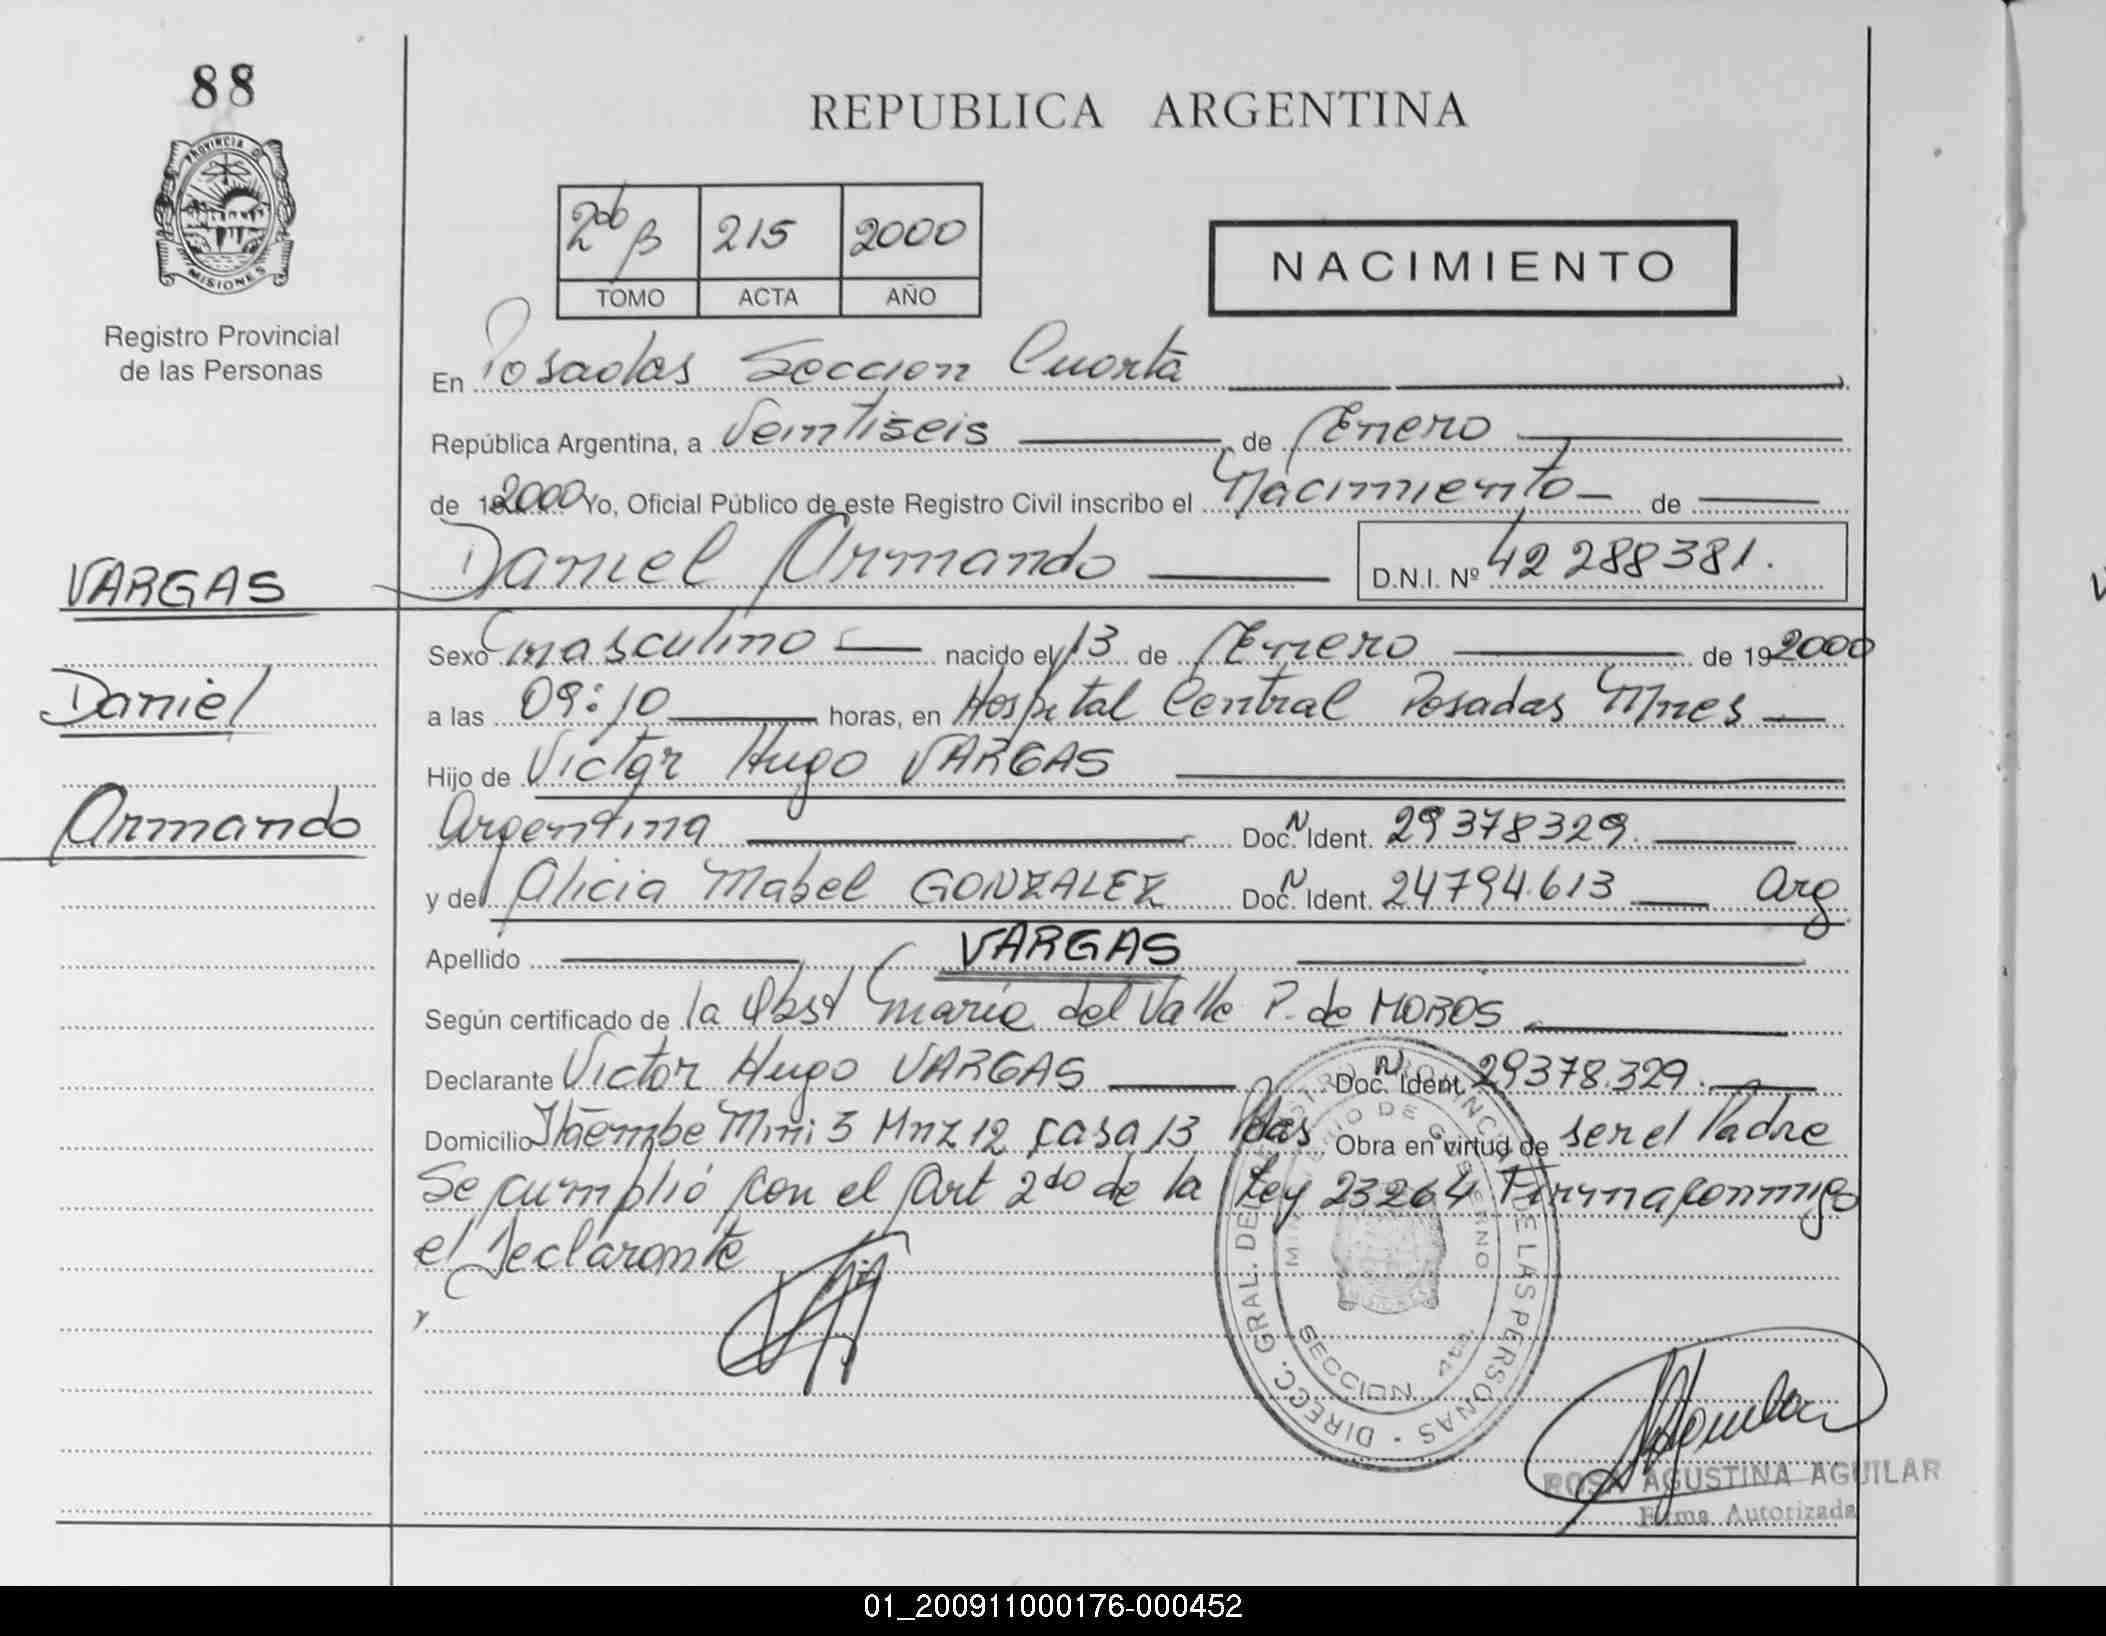 88
REPUBLICA ARGENTINA
PROVINCIA DE
MISIONES
Registro Provincial
de las Personas
215 2000
TOMO ACTA AÑO
NACIMIENTO
En Posadas Seccion Cuarta
República Argentina, a Veintiseis de Enero
de 19 2000 Yo, Oficial Público de este Registro Civil inscribo el Nacimiento de
VARGAS
Daniel
Armando
Daniel Armando D.N.I. Nº 42 288381.
Sexo masculino nacido el 13 de Enero de 19 2000
a las 09:10 horas, en Hospital Central Posadas Mnes
Hijo de Victor Hugo VARGAS
Argentina Doc. N Ident. 29378329.
y de Alicia Mabel GONZALEZ Doc. N Ident. 24794.613 Arg
Apellido VARGAS
Según certificado de la Obst maria del Valle P. de MOROS
Declarante Victor Hugo VARGAS Doc. N Ident. 29378.329.
Domicilio Itaembe Mini 3 Mnz 12 casa 13 Pdas Obra en virtud de ser el Padre
Se cumplió con el Art 2do de la Ley 23264 Firma conmigo
el Declarante
DIRECC. GRAL. DEL REGISTRO PROVINCIAL DE LAS PERSONAS
MINISTERIO DE GOBIERNO
SECCION 4ta.
MISIONES
ROSA AGUSTINA AGUILAR
Firma Autorizada
01_200911000176-000452